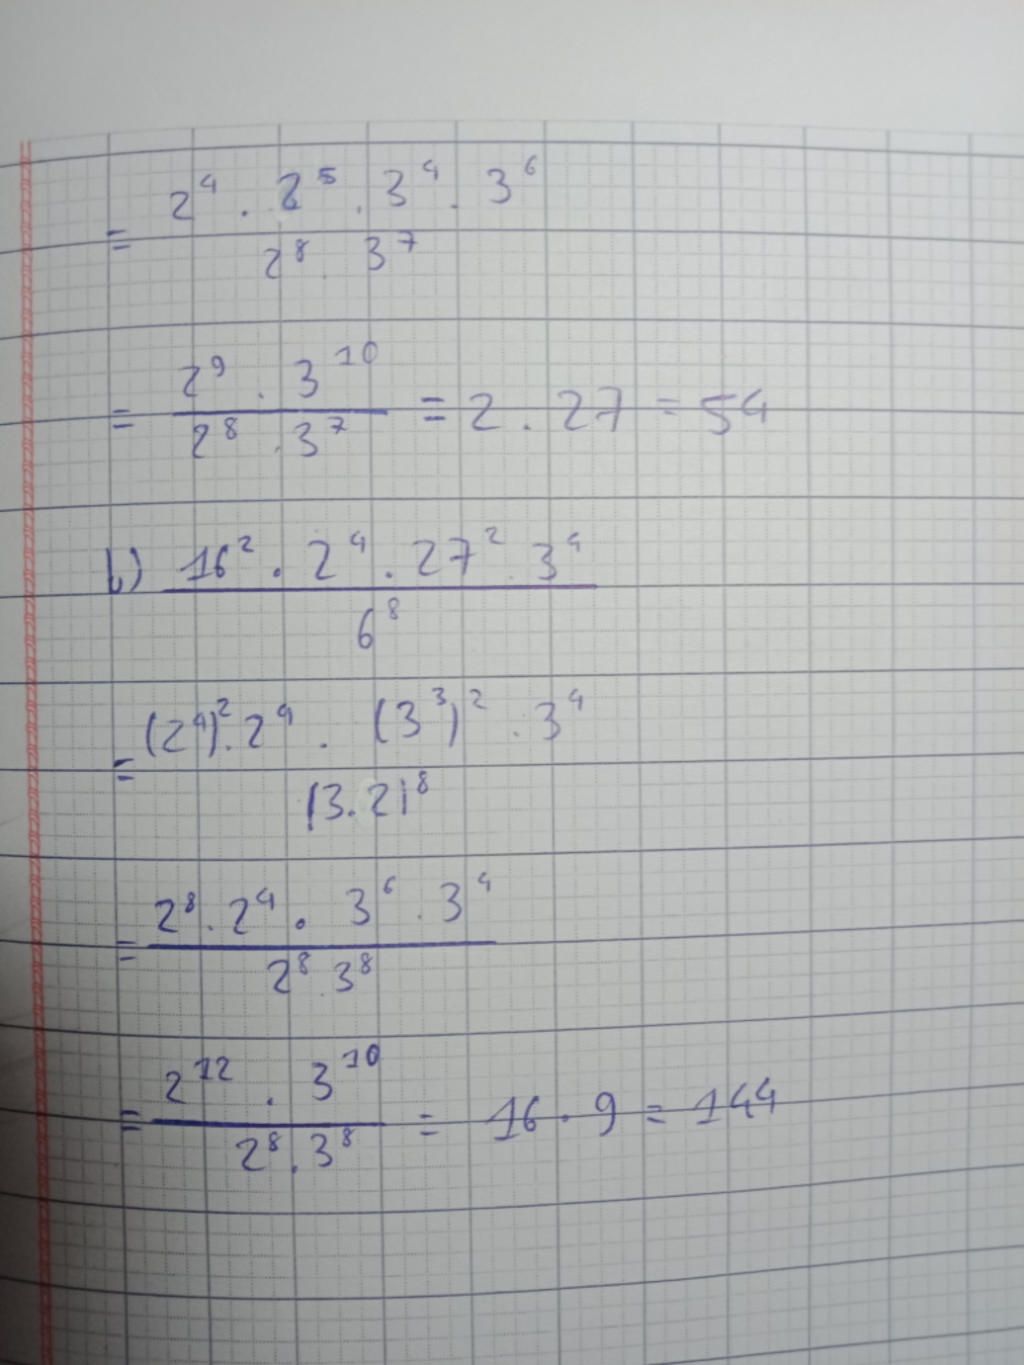 = 2⁴ . 2⁵ . 3⁴ . 3⁶ / 2⁸ . 3⁷
= 2⁹ . 3¹⁰ / 2⁸ . 3⁷ = 2 . 27 = 54
b) 16² . 2⁴ . 27² . 3⁴ / 6⁸
= (2⁴)² . 2⁴ . (3³)² . 3⁴ / (3.2)⁸
= 2⁸ . 2⁴ . 3⁶ . 3⁴ / 2⁸ . 3⁸
= 2¹² . 3¹⁰ / 2⁸ . 3⁸ = 16 . 9 = 144